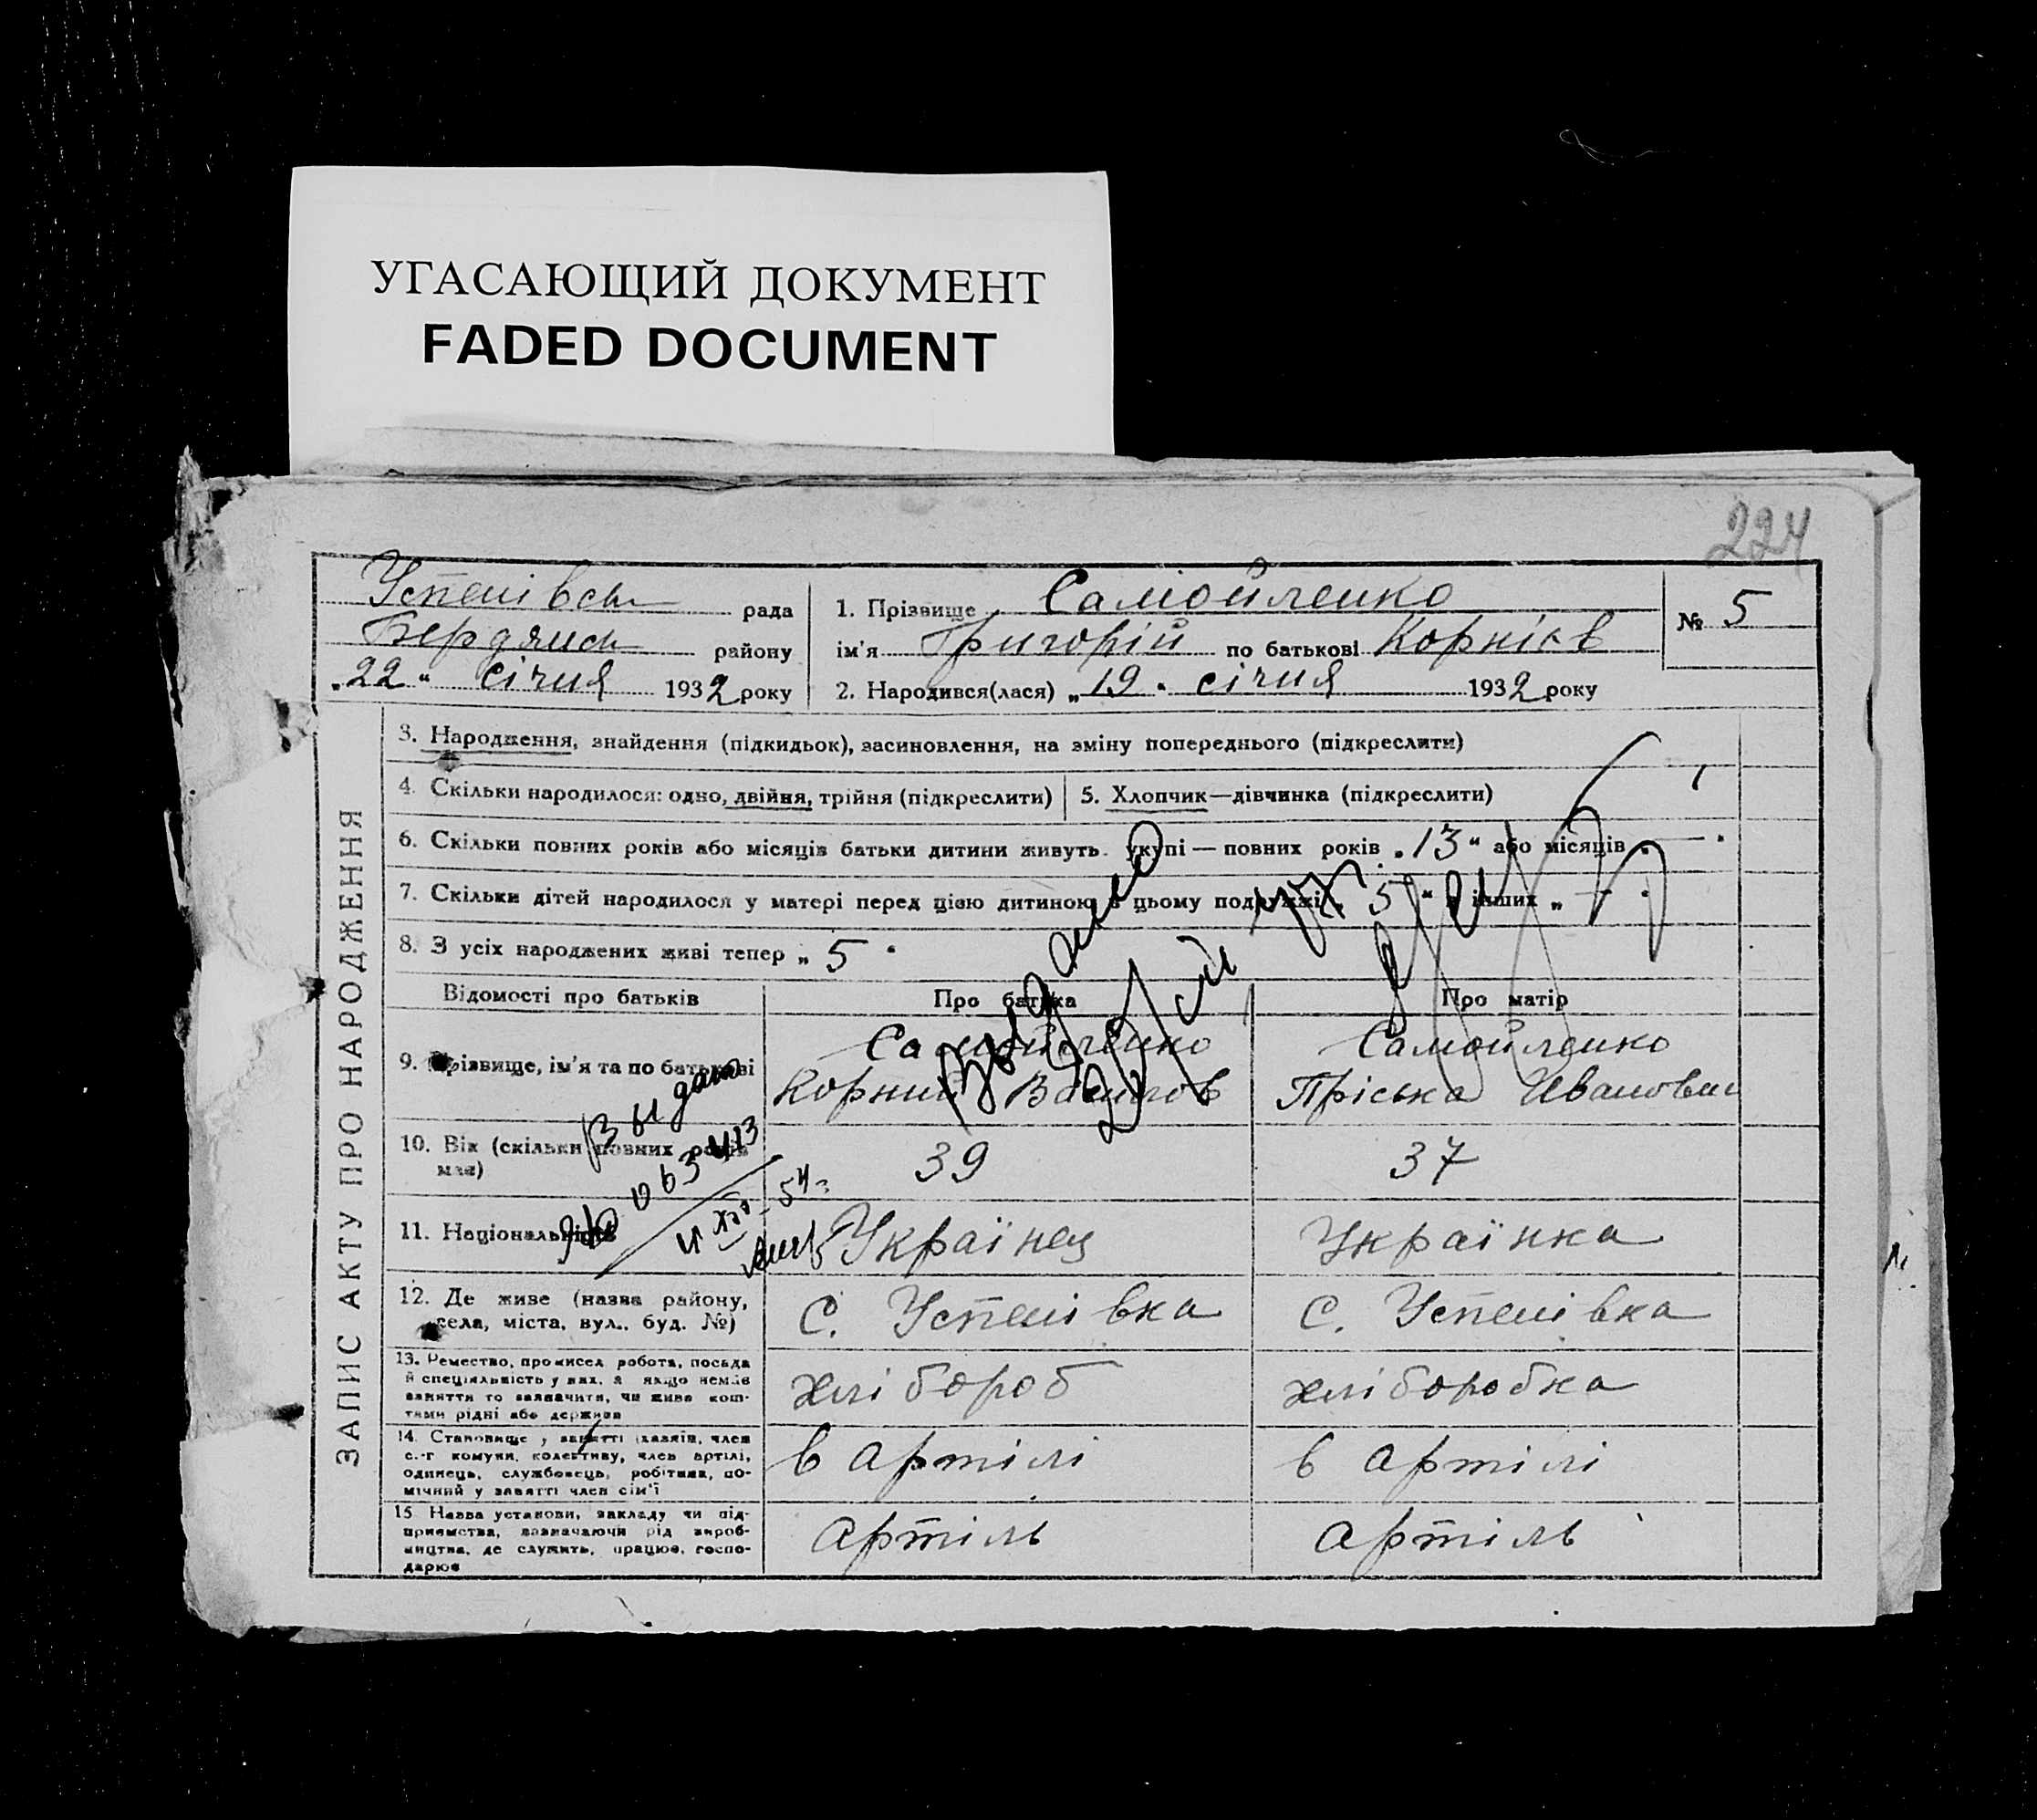 УГАСАЮЩИЙ ДОКУМЕНТ
FADED DOCUMENT
224
Успенівсь рада
Бердянсь району
„22“ січня 1932 року
1. Прізвище Самойленко
ім'я Григорій по батькові Корніїв
2. Народився(лася) „19“ січня 1932 року
№ 5
ЗАПИС АКТУ ПРО НАРОДЖЕННЯ
3. Народження, знайдення (підкидьок), засиновлення, на зміну попереднього (підкреслити)
4. Скільки народилося: одно, двійня, трійня (підкреслити)
5. Хлопчик—дівчинка (підкреслити)
6. Скільки повних років або місяців батьки дитини живуть укупі — повних років „13“ або місяців „—“
7. Скільки дітей народилося у матері перед цією дитиною в цьому подружжі „5“ в інших „—“
8. З усіх народжених живі тепер „5“
Відомості про батьків
Про батька
Про матір
9. Прізвище, ім'я та по батькові
Самойленко
Корний Васильов
Самойленко
Пріська Ивановна
10. Вік (скільки повних років має)
39
37
11. Національність
Українец
Українка
12. Де живе (назва району,
села, міста, вул., буд. №)
с. Успенівка
с. Успенівка
13. Ремество, промисел робота, посада
й спеціяльність у них, а якщо немає
заняття то зазначити, чи живе кош-
тами рідні або держави
хлібороб
хліборобка
14. Становище у занятті (хазяїн, член
с.-г комуни, колективу, член артілі,
одинець, службовець, робітник, по-
мічний у занятті член сім'ї
в артілі
в артілі
15. Назва установи, закладу чи під-
приємства, зазначаючи рід вироб-
ництва, де служить, працює, госпо-
дарює
артіль
артіль
Выдано